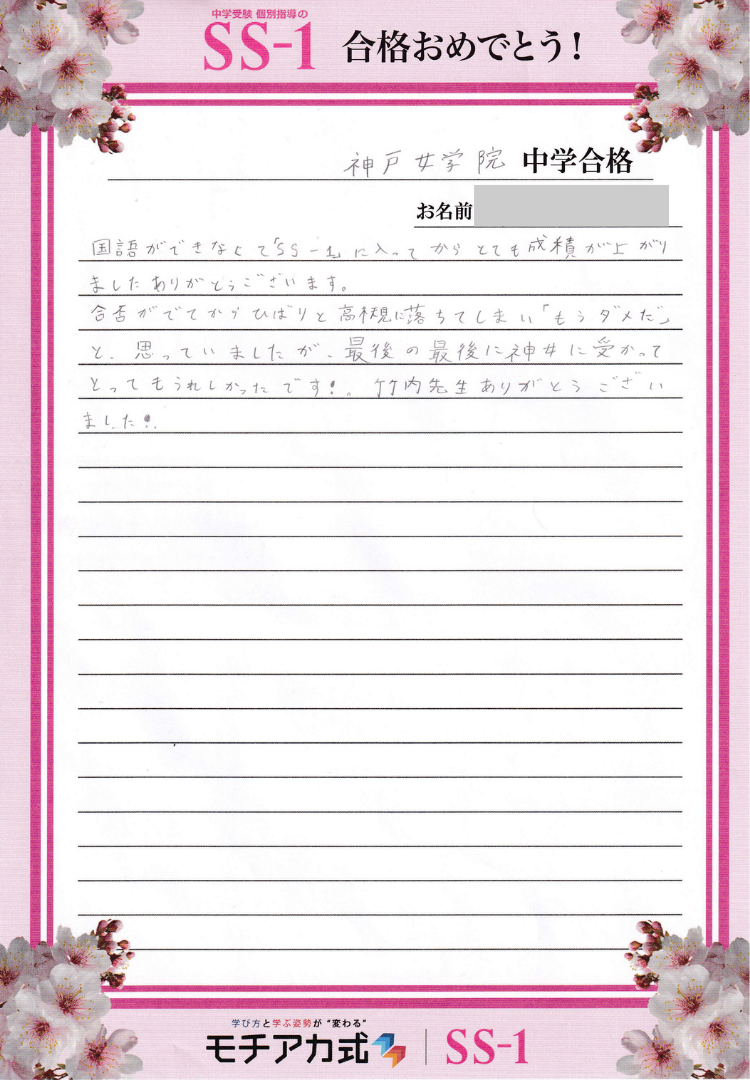 中学受験 個別指導の
SS-1 合格おめでとう！
神戸女学院 中学合格
お名前
国語ができなくて「SS-1」に入ってからとても成積が上がり
ましたありがとうございます。
合否がでてからひばりと高槻に落ちてしまい「もうダメだ」
と、思っていましたが、最後の最後に神女に受かって
とってもうれしかったです!。竹内先生ありがとうござい
ました!.
学び方と学ぶ姿勢が “変わる”
モチアカ式 | SS-1